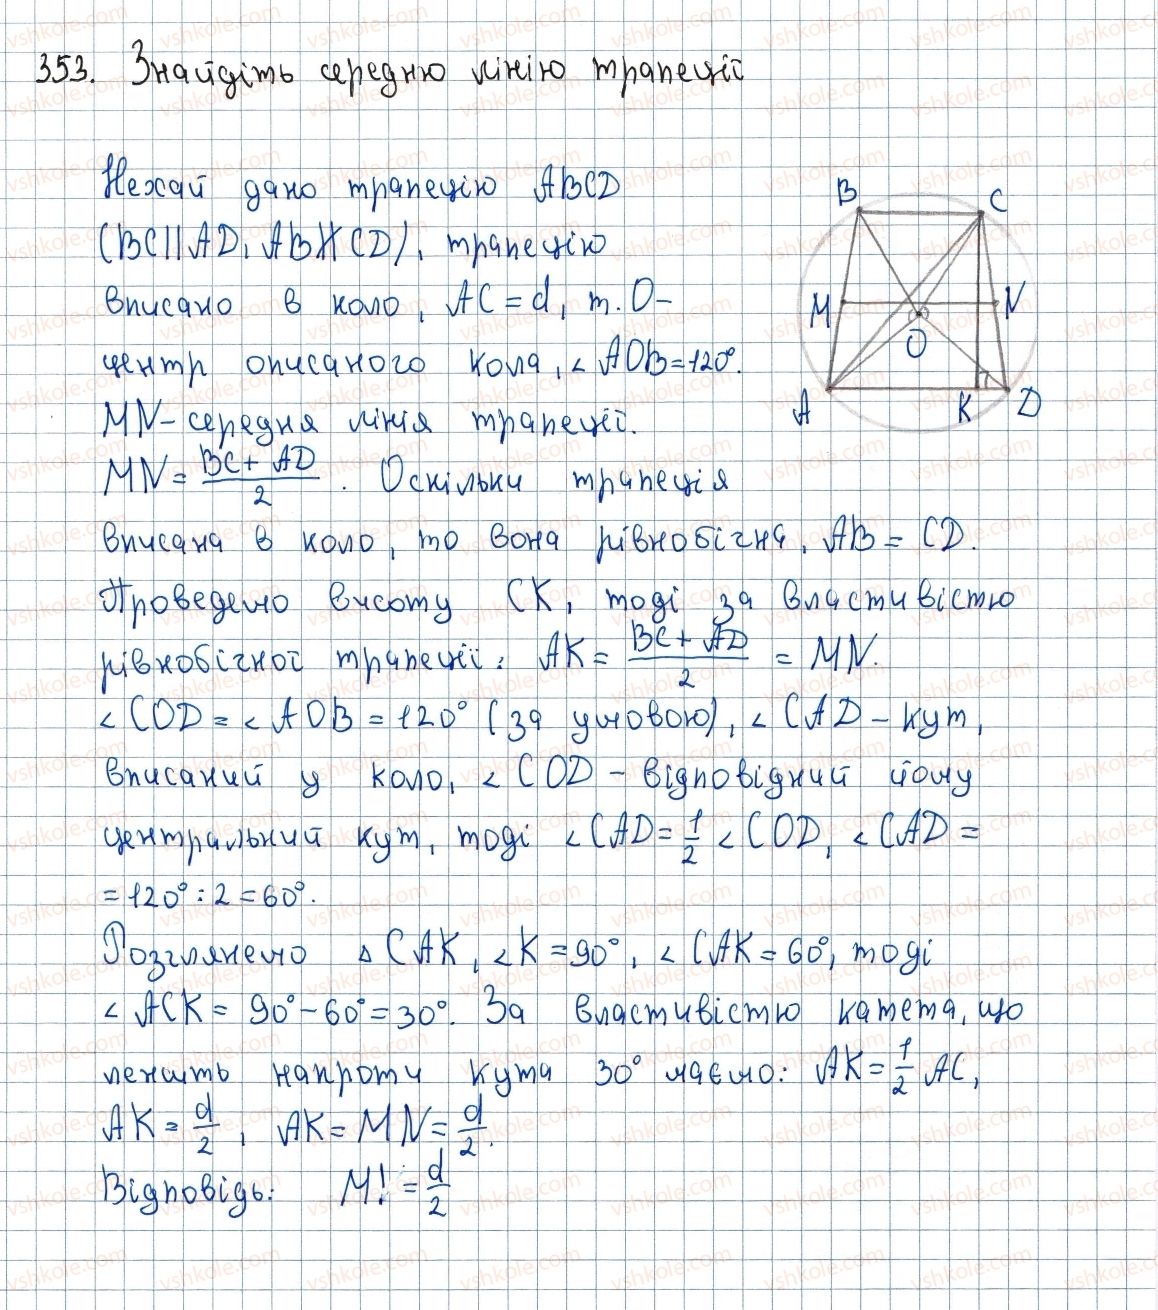 353. Знайдіть середню лінію трапеції
Нехай дано трапецію ABCD
(BC||AD, AB∦CD), трапецію
вписано в коло, AC = d, т. O –
центр описаного кола, ∠AOB = 120°.
MN – середня лінія трапеції.
MN = (BC + AD)/2 . Оскільки трапеція
вписана в коло, то вона рівнобічна, AB = CD.
Проведемо висоту CK, тоді за властивістю
рівнобічної трапеції: AK = (BC + AD)/2 = MN.
∠COD = ∠AOB = 120° (за умовою), ∠CAD – кут,
вписаний у коло, ∠COD – відповідний йому
центральний кут, тоді ∠CAD = 1/2 ∠COD, ∠CAD =
= 120° : 2 = 60°.
Розглянемо △CAK, ∠K = 90°, ∠CAK = 60°, тоді
∠ACK = 90° – 60° = 30°. За властивістю катета, що
лежить напроти кута 30° маємо: AK = 1/2 AC,
AK = d/2 , AK = MN = d/2.
Відповідь: M! = d/2
B
C
M
N
O
A
K
D